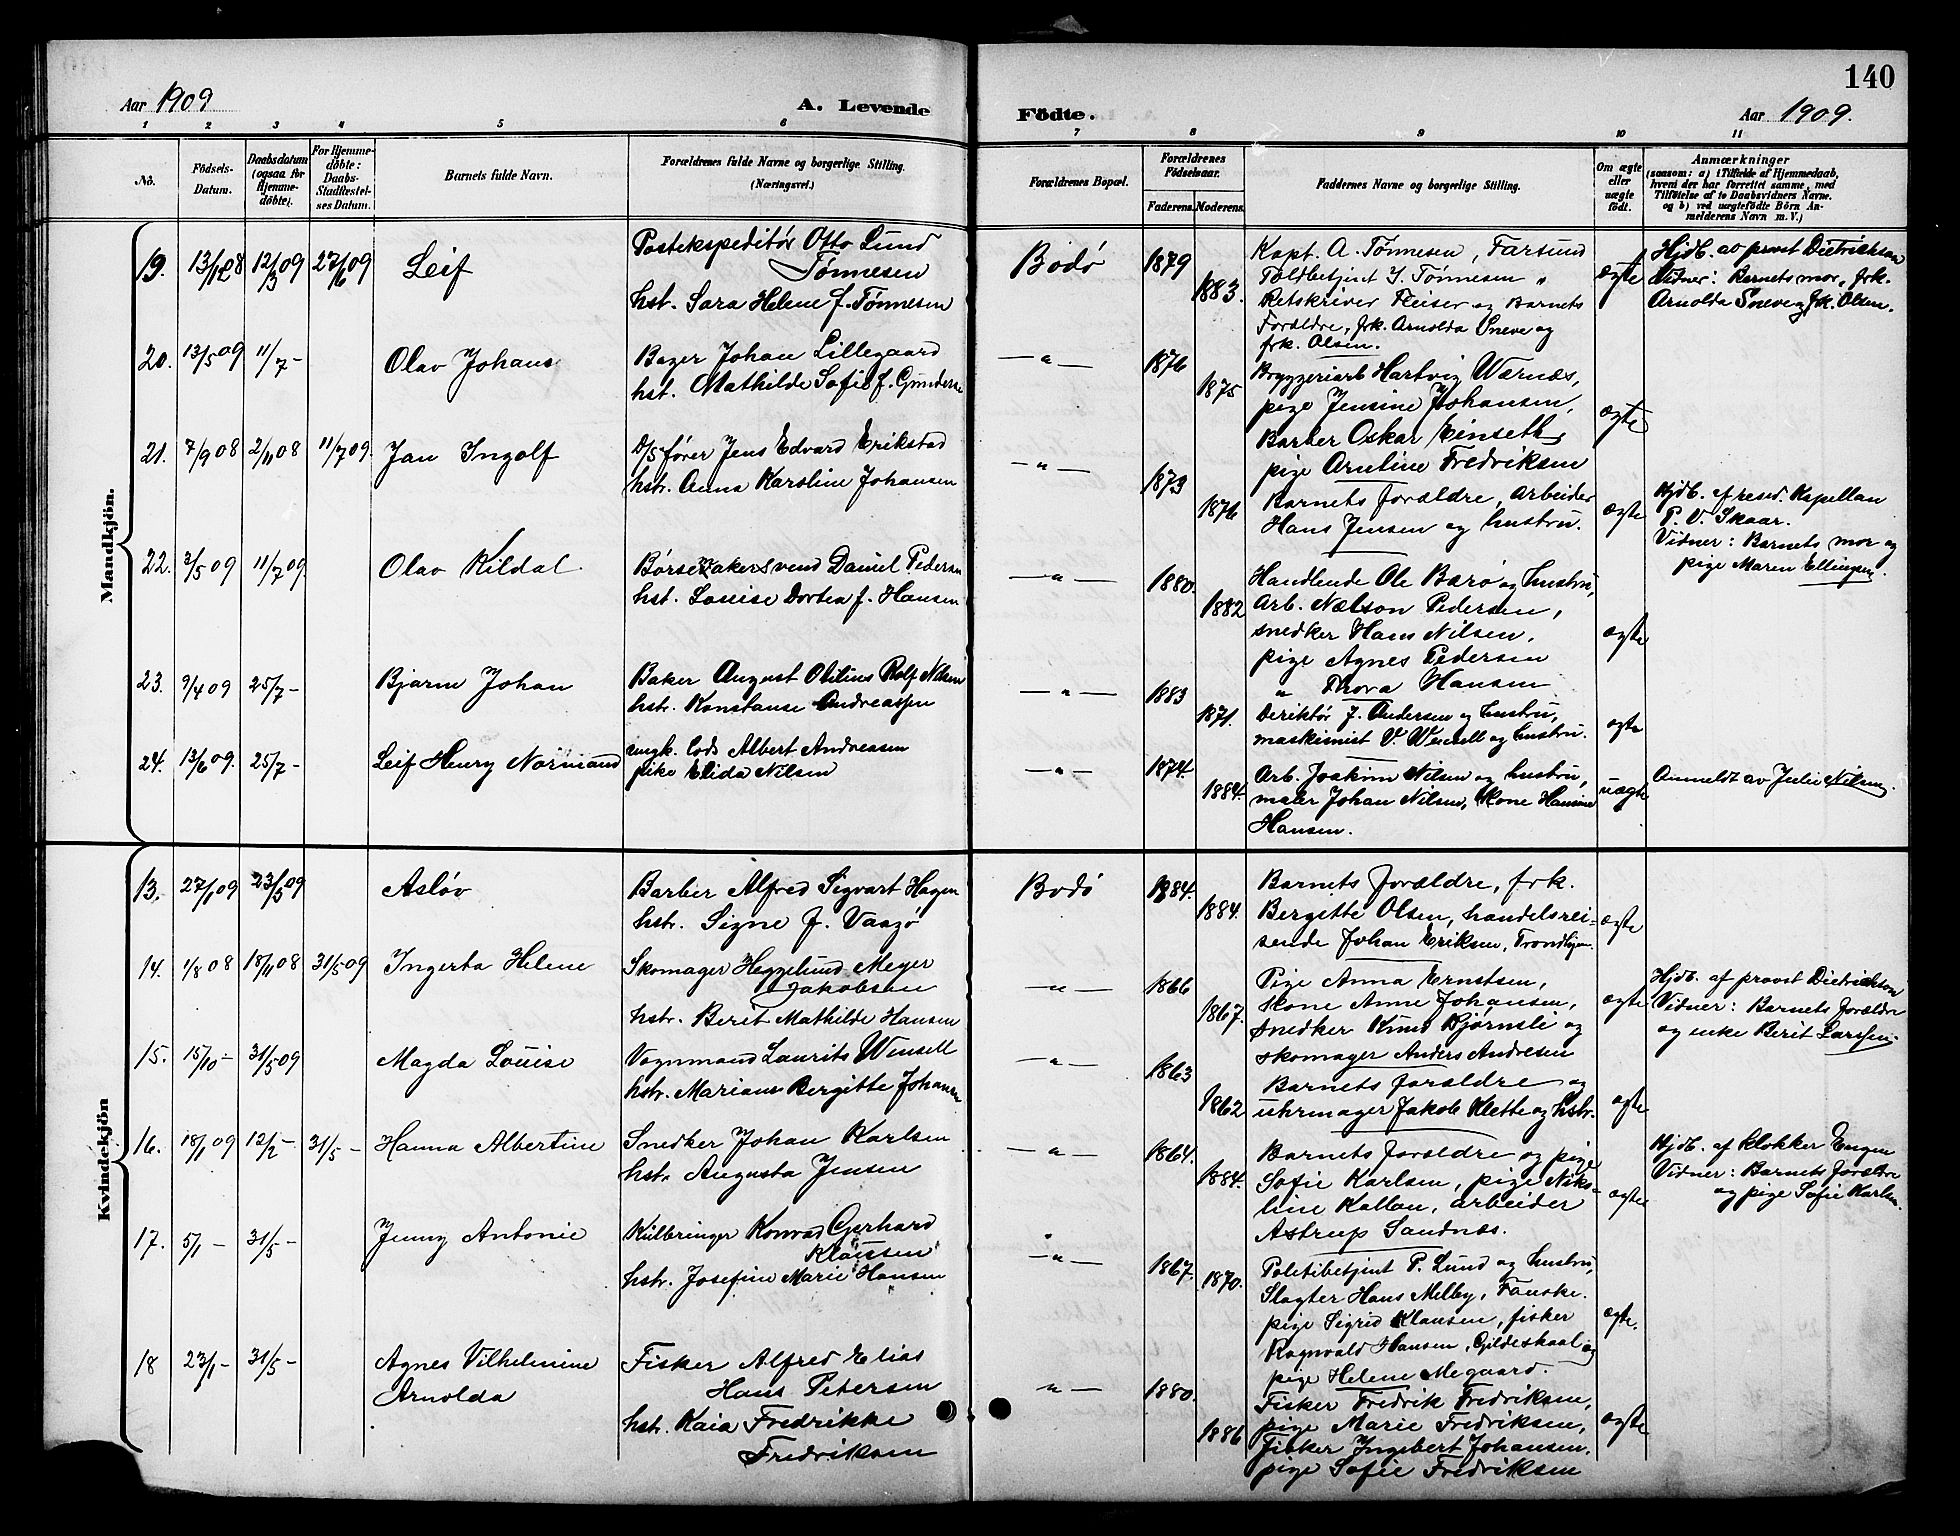 140
Aar 1909
A. Levende
Födte.
Aar 1909.
1 2 3 4 5 6 7 8 9 10 11
No.
Födsels-
Datum.
Daabsdatum
(ogsaa for
Hjemme-
döbte).
For Hjemme-
döbte:
Daabs-
Stadfæstel-
ses Datum.
Barnets fulde Navn.
Forældrenes fulde Navne og borgerlige Stilling.
(Næringsvei.)
Forældrenes Bopæl.
Forældrenes
Födselsaar.
Faderens. Moderens.
Faddernes Navne og borgerlige Stilling.
Om ægte
eller
uægte
födt.
Anmærkninger
(saasom: a) i Tilfælde af Hjemmedaab,
hvem der har forrettet samme, med
Tilföielse af to Daabsvidners Navne.
og b) ved uægtefödte Börn An-
melderens Navn m. V.)
Mandkjön.
19. 13/12 08 12/3 09 27/6 09 Leif
Postekspeditör Otto Lund
Tönnesen
hst. Sara Helene f. Tönnesen
Bodö 1879 1883.
Kapt. A. Tönnesen, Farsund
Toldbetjent J. Tönnesen "
Retskriver Fleiser og Barnets
Forældre, frk. Arnolda Sneve og
frk. Olsen.
ægte
Hjdb. av provst Dietrichson
Vidner: Barnets mor, frk.
Arnolda Sneve og frk. Olsen.
20. 13/5 09 11/7 - Olav Johans
Bager Johan Lillegaard
hst. Mathilde Sofie f. Gunders
— " — 1876 1875
Bryggeriarb Hartvig Wærnæs,
pige Jensine Johansen,
Barber Oskar Einseth,
pige Arntine Fredriksen
ægte
21. 7/9 08 2/11 08 11/7 09. Jan Ingolf
D/S förer Jens Edvard Erikstad
hstr. Anna Karoline Johansen
— " — 1873 1876
Barnets forældre, Arbeider
Hans Jensen og hustru.
ægte
Hjdb. af resid. Kapellan
P. V. Skaar.
Vidner: Barnets mor og
pige Maren Ellingsen.
22. 3/5 09 11/7 09 Olav Kildal
Börsemakersvend Daniel Pedersen
hst. Louise Dortea f. Hansen
— " — 1880. 1882
Handlende Ole Barö og hustru,
Arb. Nelson Pedersen,
snedker Hans Nilsen,
pige Agnes Pedersen
" Thora Hansen
ægte
23. 9/4 09 25/7 - Bjarne Johan
Baker August Otilius Rolf Nilsen
hstr. Konstanse Andreassen
— " — 1883 1871.
Direktör J. Andersen og hustru,
maskinist V. Wensell og hustru.
ægte
24. 13/6 09. 25/7 - Leif Henry Normand
ungk. Lods Albert Andreasen
pike Elida Nilsen
— " — 1874. 1884.
Arb. Joakim Nilsen og hustru,
maler Johan Nilsen, Kone Hansine
Hansen.
uægte
Anmeldt av Julie Nilsen.
Kvindekjön
13. 27/1 09 23/5 09 Aslöv
Barber Alfred Sigvart Hagen
hstr. Signe f. Vaagö
Bodö 1884. 1884.
Barnets forældre, frk.
Bergitte Olsen, handelsrei-
sende Johan Eriksen, Trondhjem.
ægte
14. 1/8 08 18/11 08 31/5 09 Ingerta Helene
Skomager Heggelund Meyer
Jakobsen
hstr. Berit Mathilde Hansen
— " — 1866 1867.
Pige Anna Ernstsen,
Kone Anne Johansen,
snedker Knud Bjørnsli og
skomager Anders Andresen
ægte
Hjdb. af provst Dietrichson
Vidner: Barnets Forældre
og enke Berit Larssen.
15. 15/10 - 31/5 09 Magda Louise
Vognmand Laurits Wensell
hstr. Mariane Bergitte Johansen
— " — 1863 1862
Barnets forældre og
uhrmager Jakob Klette og hstr.
ægte
16. 18/1 09 12/2 - 31/5 - Hanna Albertine
Snedker Johan Karlsen
hstr. Augusta Jensen
— " — 1864. 1884.
Barnets forældre og pige
Sofie Karlsen, pige Niko-
line Kallan, arbeider
Astrup Sandnæs.
ægte
Hjdb. af klokker Engen
Vidner: Barnets Forældre
og pige Sofie Karlsen.
17. 5/1 - 31/5 - Jenny Antonie
Kulbringer Konrad Gerhard
Klausen
hstr. Josefine Marie Hansen
— " — 1867. 1870.
Politibetjent P. Lund og hustru,
Slagter Hans Melby, Fauske.
pige Sigrid Klausen, fisker
Ragnvald Hansen, Gildeskaal og
pige Helene Megaard.
ægte.
18 23/1 - 31/5 - Agnes Vilhelmine
Arnolda
Fisker Alfred Elias
Hans Petersen
hstr. Kaia Fredrikke
Fredriksen
— " — 1880. 1886
Fisker Fredrik Fredriksen,
pige Marie Fredriksen,
Fisker Ingebert Johansen.
pige Sofie Fredriksen
ægte